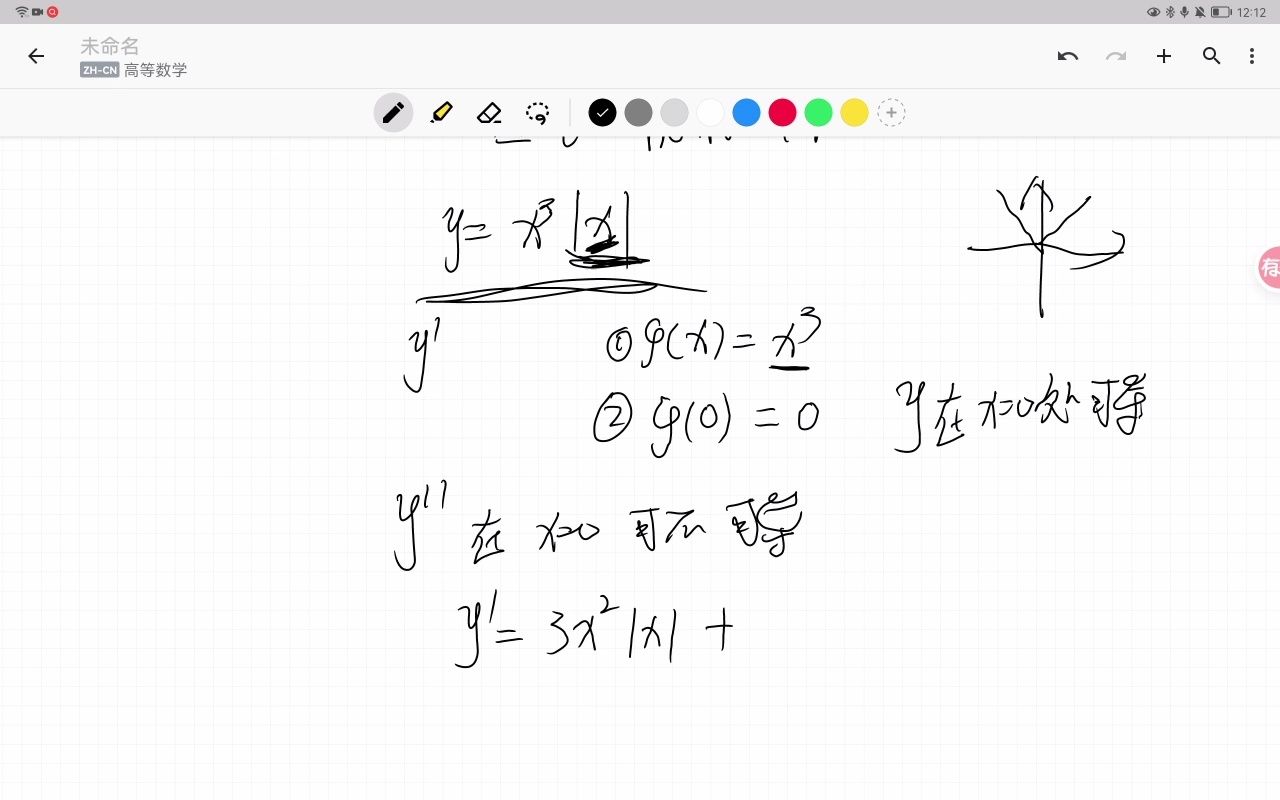 12:12
未命名
ZH-CN 高等数学
y = x³ |x|
y′ ① φ(x) = x³
② φ(0) = 0 y在x=0处可导
y′′ 在 x=0 可不可导
y′ = 3x² |x| +